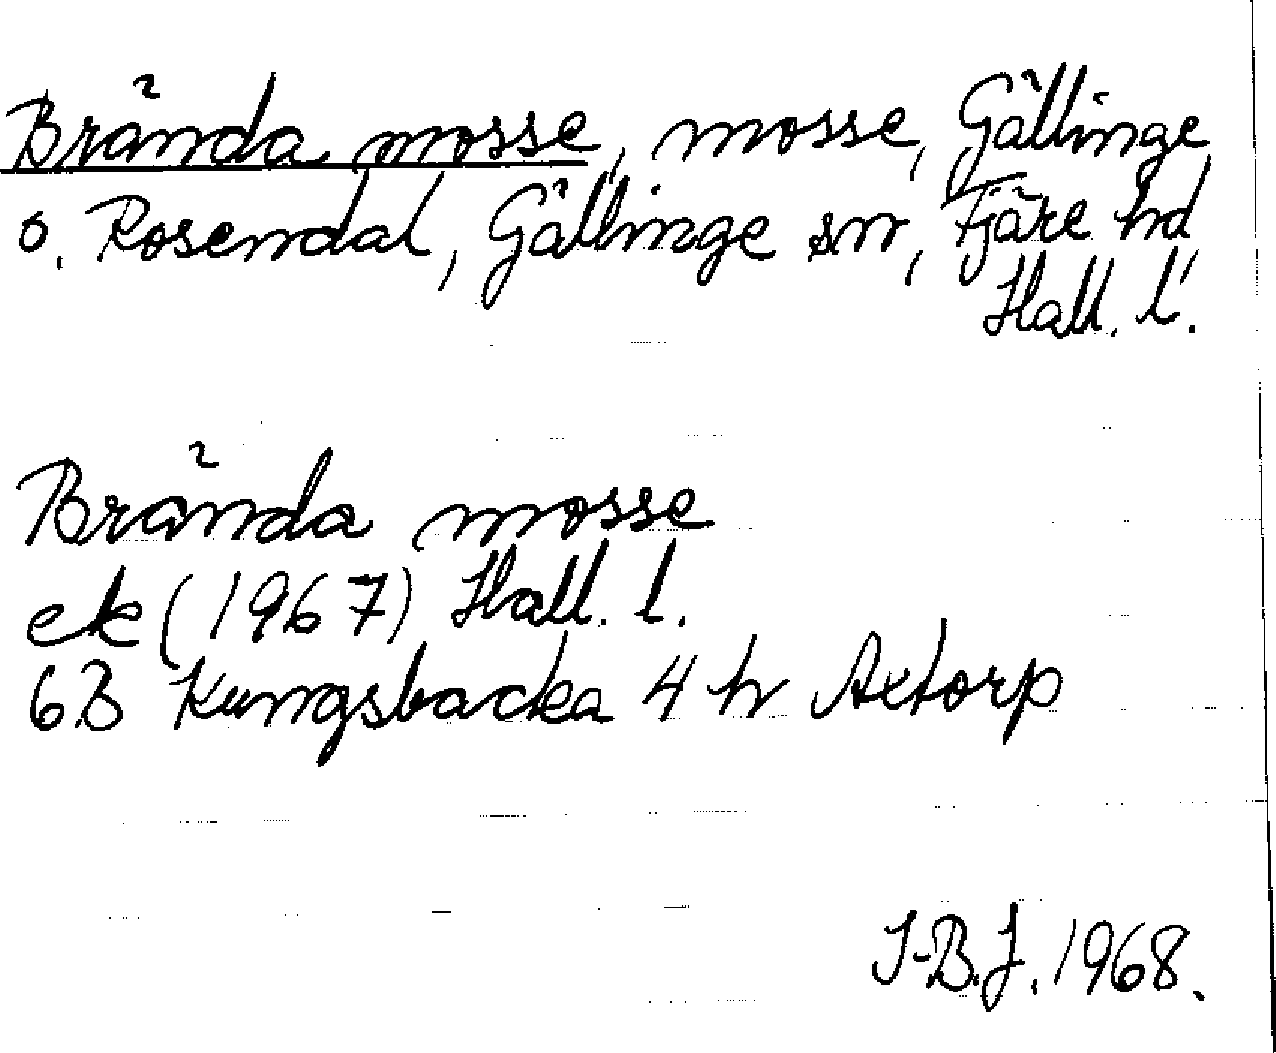 Brända mosse, mosse, Gällinge
o. Rosendal, Gällinge sn, Fjäre hd,
Hall. l.
Brända mosse
ek (1967) Hall. l.
6B Kungsbacka 4 h Axtorp
I-B.J. 1968.